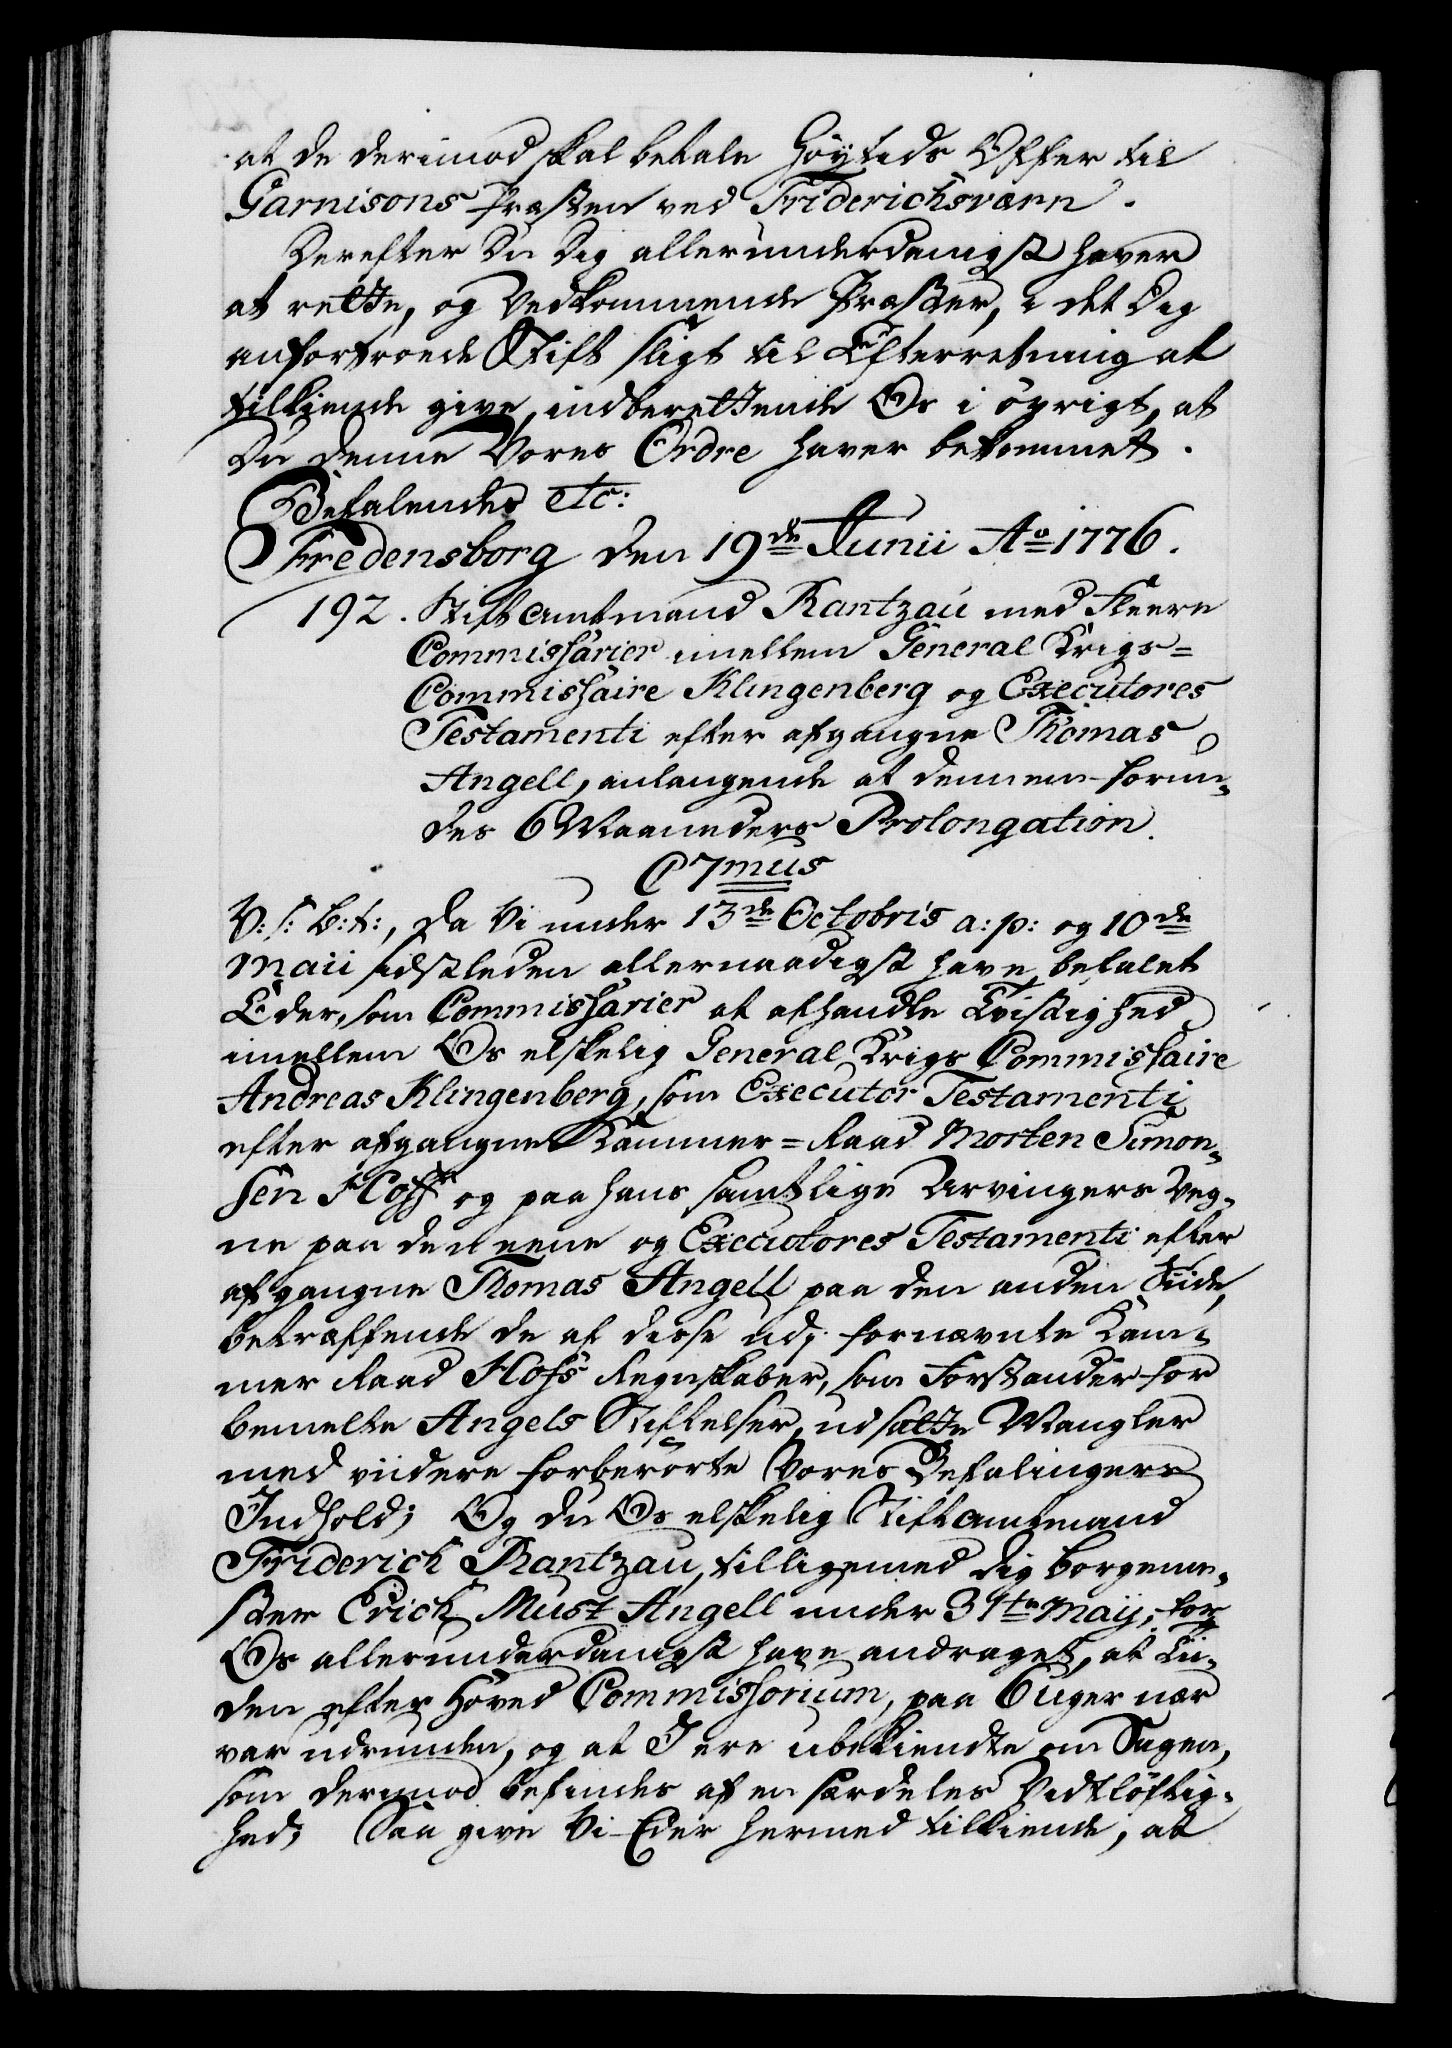 at de derimod skal betale Höytids Offer til
Garnisons Præsten ved Friderichsværn.
Derefter Du Dig allerunderdanigst haver
at rette, og Vedkommende Præster, i det Dig
anfortroede Stift sligt til Efterretning at
tilkiende give, indberettende Os i övrigt, at
Du denne Vores Ordre haver bekommet.
Befalendes etc:
Fredensborg den 19de Junii Ao 1776.
192. Stiftamtmand Rantzau med Fleere
Commissarier imellem General Krigs=
Commissaire Klingenberg og Executores
Testamenti efter afgangne Thomas
Angell, anlangende at dennem forun-
des 6 Maaneders Prolongation.
C 7mus
V: S: B: t:, Da Vi under 13de Octobris a: p: og 10de
Maii sidstleden allernaadigst have befalet
Eder, som Commissarier at afhandle Tvistighed
imellem Os elskelig General Krigs Commissaire
Andreas Klingenberg, som Executor Testamenti
efter afgangne Kammer=Raad Morten Simon-
sen Hoff og paa hans samtlige Arvingers Veg-
ne paa den eene og Executores Testamenti efter
afgangne Thomas Angell paa den anden Siide,
betræffende de af disse udj fornævnte Kam-
mer Raad Hofs Regnskaber, som Forstander for
bemelte Angels Stiftelser, udsatte Mangler
med viidere forberörte Vores Befalingers
Indhold; Og du Os elskelig Stiftamtmand
Friderich Rantzau, tilligemed dig Borgeme-
ster Erich Must Angell under 31te Maij, for
Os allerunderdanigst have andraget, at Tii-
den efter Hoved Commissorium, paa 6 Uger nær
var udrunden, og at I ere ubekiendte om Sagen,
som derimod befindes af en særdeles Vidtlöftig-
hed; Saa give Vi Eder hermed tilkiende, at